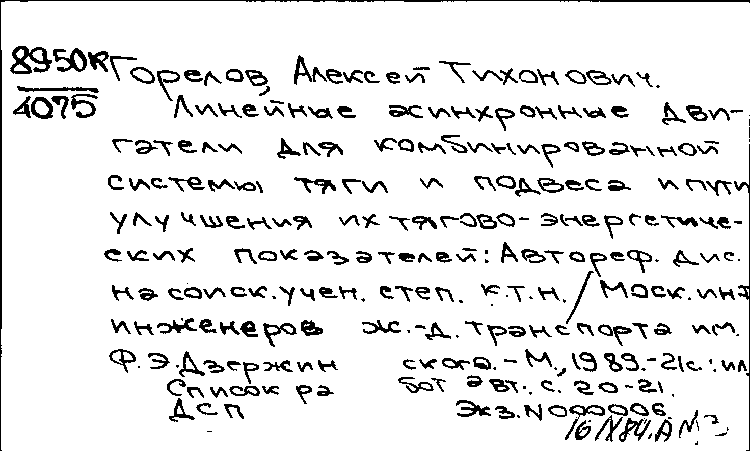 8950к Горелов, Алексей Тихонович.
4075 Линейные асинхронные дви-
гатели для комбинированной
системы тяги и подвеса и пути
улучшения их тягово-энергетиче-
ских показателей: Автореф. дис.
на соиск. учен. степ. к.т.н. / Моск. инт
инженеров ж.-д. транспорта им.
Ф.Э.Дзержин ского. - М., 1983. - 21с. : ил
Список ра бот авт.: с. 20-21.
ДСП Экз. N 000006